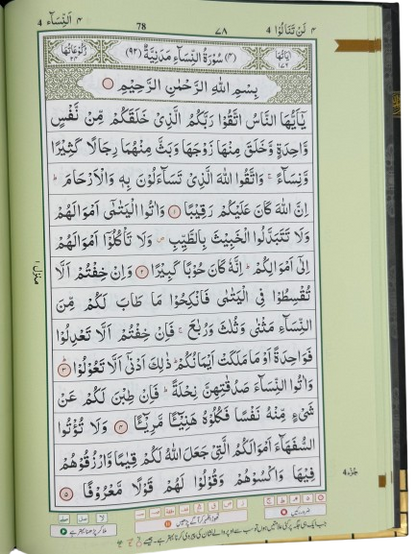 ٤ اَلنِّسَآء 4 78 ٧٨ ٤ لَنْ تَنَالُوْا 4
اٰيَاتُهَا ١٧٦ (٤) سُوْرَةُ النِّسَآءِ مَدَنِيَّةٌ (٩٢) رُكُوْعَاتُهَا ٢٤
بِسْمِ اللّٰهِ الرَّحْمٰنِ الرَّحِيْمِ
يٰٓاَيُّهَا النَّاسُ اتَّقُوْا رَبَّكُمُ الَّذِيْ خَلَقَكُمْ مِّنْ نَّفْسٍ
وَّاحِدَةٍ وَّخَلَقَ مِنْهَا زَوْجَهَا وَبَثَّ مِنْهُمَا رِجَالًا كَثِيْرًا
وَّنِسَآءً ۚ وَاتَّقُوا اللّٰهَ الَّذِيْ تَسَآءَلُوْنَ بِهٖ وَالْاَرْحَامَ ؕ
اِنَّ اللّٰهَ كَانَ عَلَيْكُمْ رَقِيْبًا ۝١ وَاٰتُوا الْيَتٰمٰٓى اَمْوَالَهُمْ
وَلَا تَتَبَدَّلُوا الْخَبِيْثَ بِالطَّيِّبِ ۪ وَلَا تَاْكُلُوْٓا اَمْوَالَهُمْ
اِلٰٓى اَمْوَالِكُمْ ؕ اِنَّهٗ كَانَ حُوْبًا كَبِيْرًا ۝٢ وَاِنْ خِفْتُمْ اَلَّا
تُقْسِطُوْا فِى الْيَتٰمٰى فَانْكِحُوْا مَا طَابَ لَكُمْ مِّنَ
النِّسَآءِ مَثْنٰى وَثُلٰثَ وَرُبٰعَ ۚ فَاِنْ خِفْتُمْ اَلَّا تَعْدِلُوْا
فَوَاحِدَةً اَوْ مَا مَلَكَتْ اَيْمَانُكُمْ ؕ ذٰلِكَ اَدْنٰٓى اَلَّا تَعُوْلُوْا ۝٣
وَاٰتُوا النِّسَآءَ صَدُقٰتِهِنَّ نِحْلَةً ؕ فَاِنْ طِبْنَ لَكُمْ عَنْ
شَيْءٍ مِّنْهُ نَفْسًا فَكُلُوْهُ هَنِيْٓـًٔا مَّرِيْٓـًٔا ۝٤ وَلَا تُؤْتُوا
السُّفَهَآءَ اَمْوَالَكُمُ الَّتِيْ جَعَلَ اللّٰهُ لَكُمْ قِيٰمًا وَّارْزُقُوْهُمْ
فِيْهَا وَاكْسُوْهُمْ وَقُوْلُوْا لَهُمْ قَوْلًا مَّعْرُوْفًا ۝٥
منزل ١